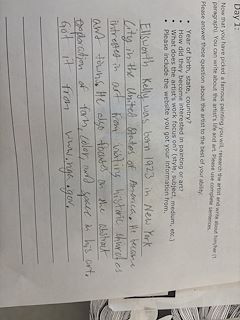 Day 2
Now that you have picked a famous painting you will research the artist and write about him/her (1
paragraph). You can write about the artist's life and art. Please use complete sentences.
Please answer these question about the artist to the best of your ability:
• Year of birth, state, country?
• How did they become interested in painting or art?
• What does the artist's work focus on? (style, subject, medium, etc.)
• Please include the website you got your information from.
Ellsworth Kelly was born 1923 in New York
City in the United States of America. He became
interested in art from visiting historic churches
and tours. He also focuses on the abstract
exploration of form, color, and space in his art.
Got it from www.nga.gov.